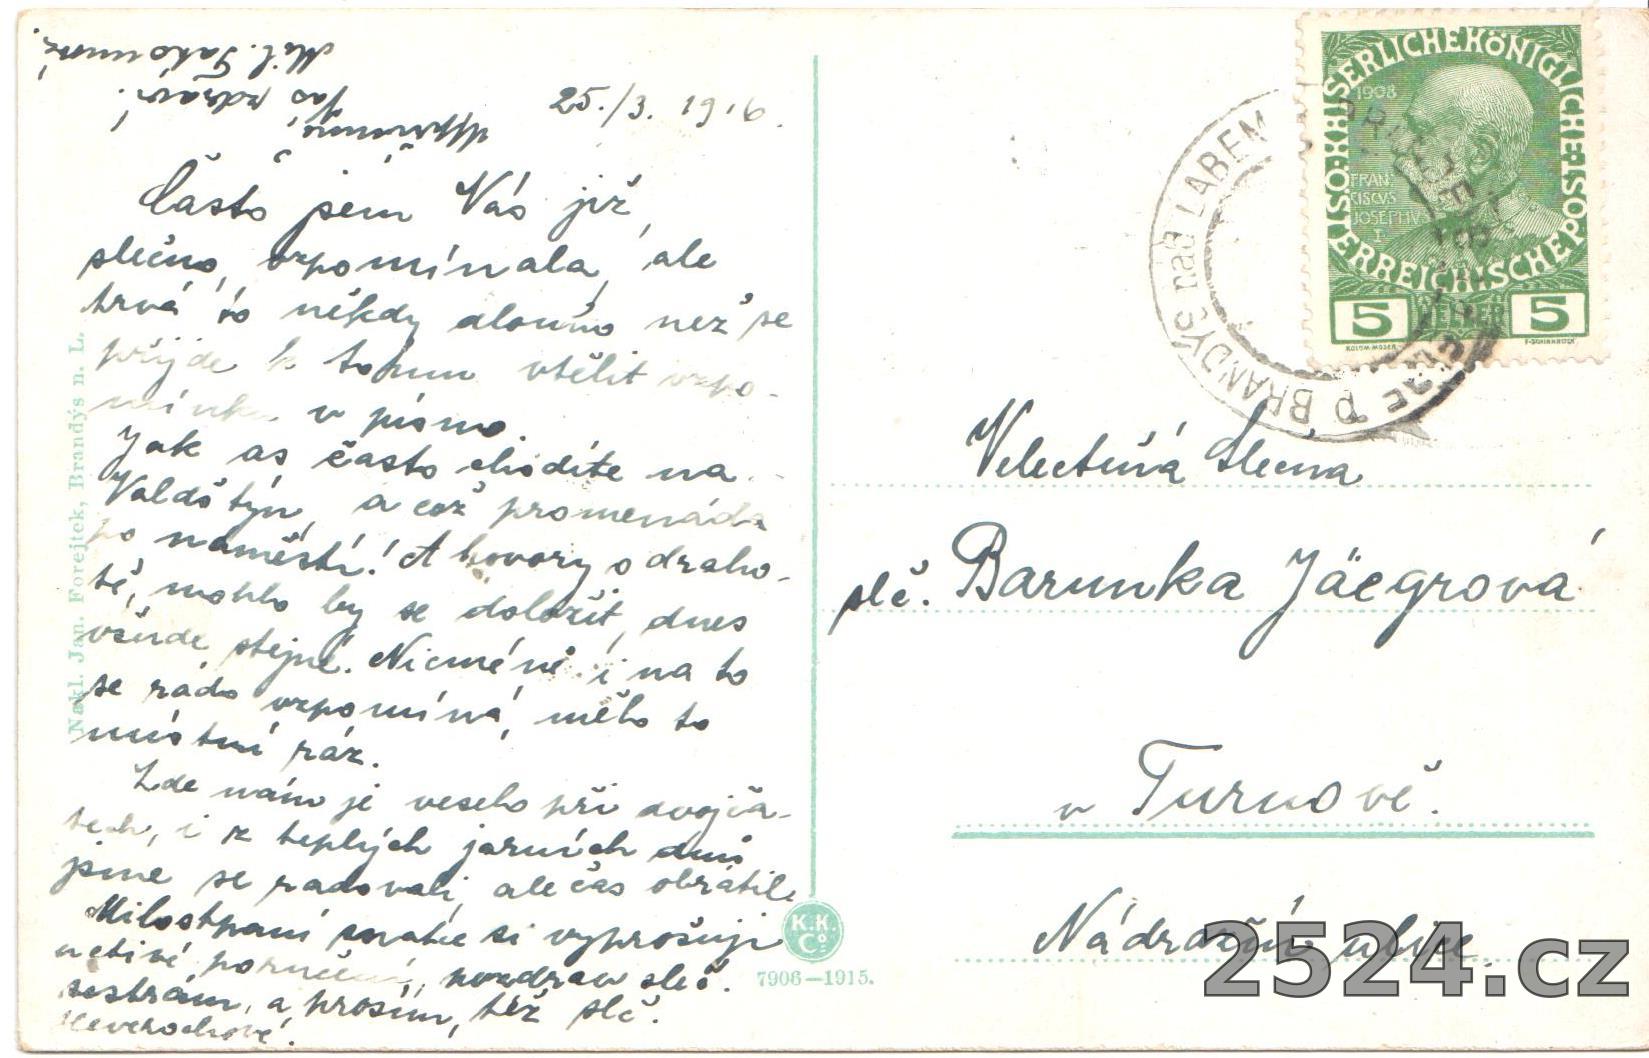 25./3. 1916.
Často jsem Vás již,
slečno, vzpomínala, ale
trvá to někdy dlouho než se
přijde k tomu vtělit vzpo-
mínku v písmo.
Jak as často chodíte na
Valdštýn, a což promenáda
po náměstí! A hovory o draho-
tě, mohlo by se doložit, dnes
všude stejné. Nicméně i na to
se rádo vzpomíná, mělo to
místní ráz.
Zde nám je veselo při dvojča-
tech, i z teplých jarních dnů
jsme se radovali, ale čas obrátil.
Milostpaní matce si vyprošuji
uctivé poručení, pozdrav sleč.
sestrám, a prosím, též slč.
Heverochové.
Vás zdraví
Mil.
Nakl. Jan. Forejtek, Brandýs n. L.
K.K.
Co
7906—1915.
KAISERLICHE KÖNIGLICHE ÖSTERREICHISCHE POST
1908
FRAN
CISCUS
JOSEPHUS
I.
5 HELLER 5
KOLOM. MOSER.
F. SCHIRNBÖCK
BRANDÝS nad LABEM
Velectěná Slečna
slč. Barunka Jäegrová
v Turnově.
Nádražní ulice.
2524.cz